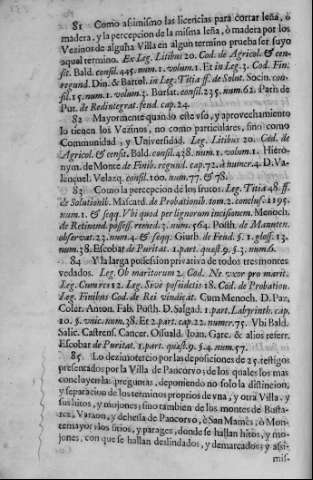 81 Como assimismo las licencias para cortar leña, ò
madera, y la percepcion de la misma leña, ò madera por los
Vezinos de alguna Villa en algun termino prueba ser suyo
aquel termino. Ex Leg. Litibus 20. Cod. de Agricol. & cen-
sit. Bald. consil. 445. num. 1. volum. 1. Et in Leg. 3. Cod. Fin.
regund. Din. & Bartol. in Leg. Titia ff. de Solut. Socin. con-
sil. 15. num. 1. volum. 3. Bursat. consil. 235. num. 62. Paris de
Put. de Redintegrat. feud. cap. 24.
82 Mayormente quando este vso, y aprovechamiento
lo tienen los Vezinos, no como particulares, sino como
Comunidad, y Universidad. Leg. Litibus 20. Cod. de
Agricol. & censit. Bald. consil. 438. num. 1. volum. 1. Hiero-
nym. de Monte de Finib. regund. cap. 72. à numer. 4. D. Va-
lençuel. Velazq. consil. 100. num. 77. & 78.
83 Como la percepcion de los frutos. Leg. Titia 48. ff.
de Solutionib. Mascard. de Probationib. tom. 2. conclus. 1195.
num. 1. & seqq. Vbi quod per lignorum incisionem. Menoch.
de Retinend. possess. remed. 3. num. 564. Posth. de Manuten.
observat. 23. num. 4. & seqq. Giurb. de Feud. §. 1. gloss. 13.
num. 28. Escobar de Puritat. 1. part. quæst. 9. §. 3. num. 6.
84 Y la larga possession privativa de todos tres montes
vedados. Leg. Ob maritorum 2. Cod. Ne vxor pro marit.
Leg. Cum res 12. Leg. Sive possidetis 18. Cod. de Probation.
Leg. Finibus Cod. de Rei vindicat. Cum Menoch. D. Paz,
Coler. Anton. Fab. Posth. D. Salgad. 1. part. Labyrinth. cap.
10. §. vnic. num. 38. Et 2. part. cap. 22. numer. 75. Vbi Bald.
Salic. Castrens. Cancer. Osuald. Joan. Garc. & alios refert.
Escobar de Puritat. 1. part. quæst. 9. §. 4. num. 57.
85 Lo dezimotercio por las deposiciones de 25. testigos
presentados por la Villa de Pancorvo; de los quales los mas
concluyen las preguntas, deponiendo no solo la distincion,
y separacion de los terminos proprios de vna, y otra Villa, y
sus hitos, y mojones; sino tambien de los montes de Busta-
rca, Varaon, y dehesa de Pancorvo, ò San Mamès, ò Mon-
temayor: los sitios, y parages, donde se hallan hitos, y mo-
jones, con que se hallan deslindados, y demarcados; y assi-
mis-